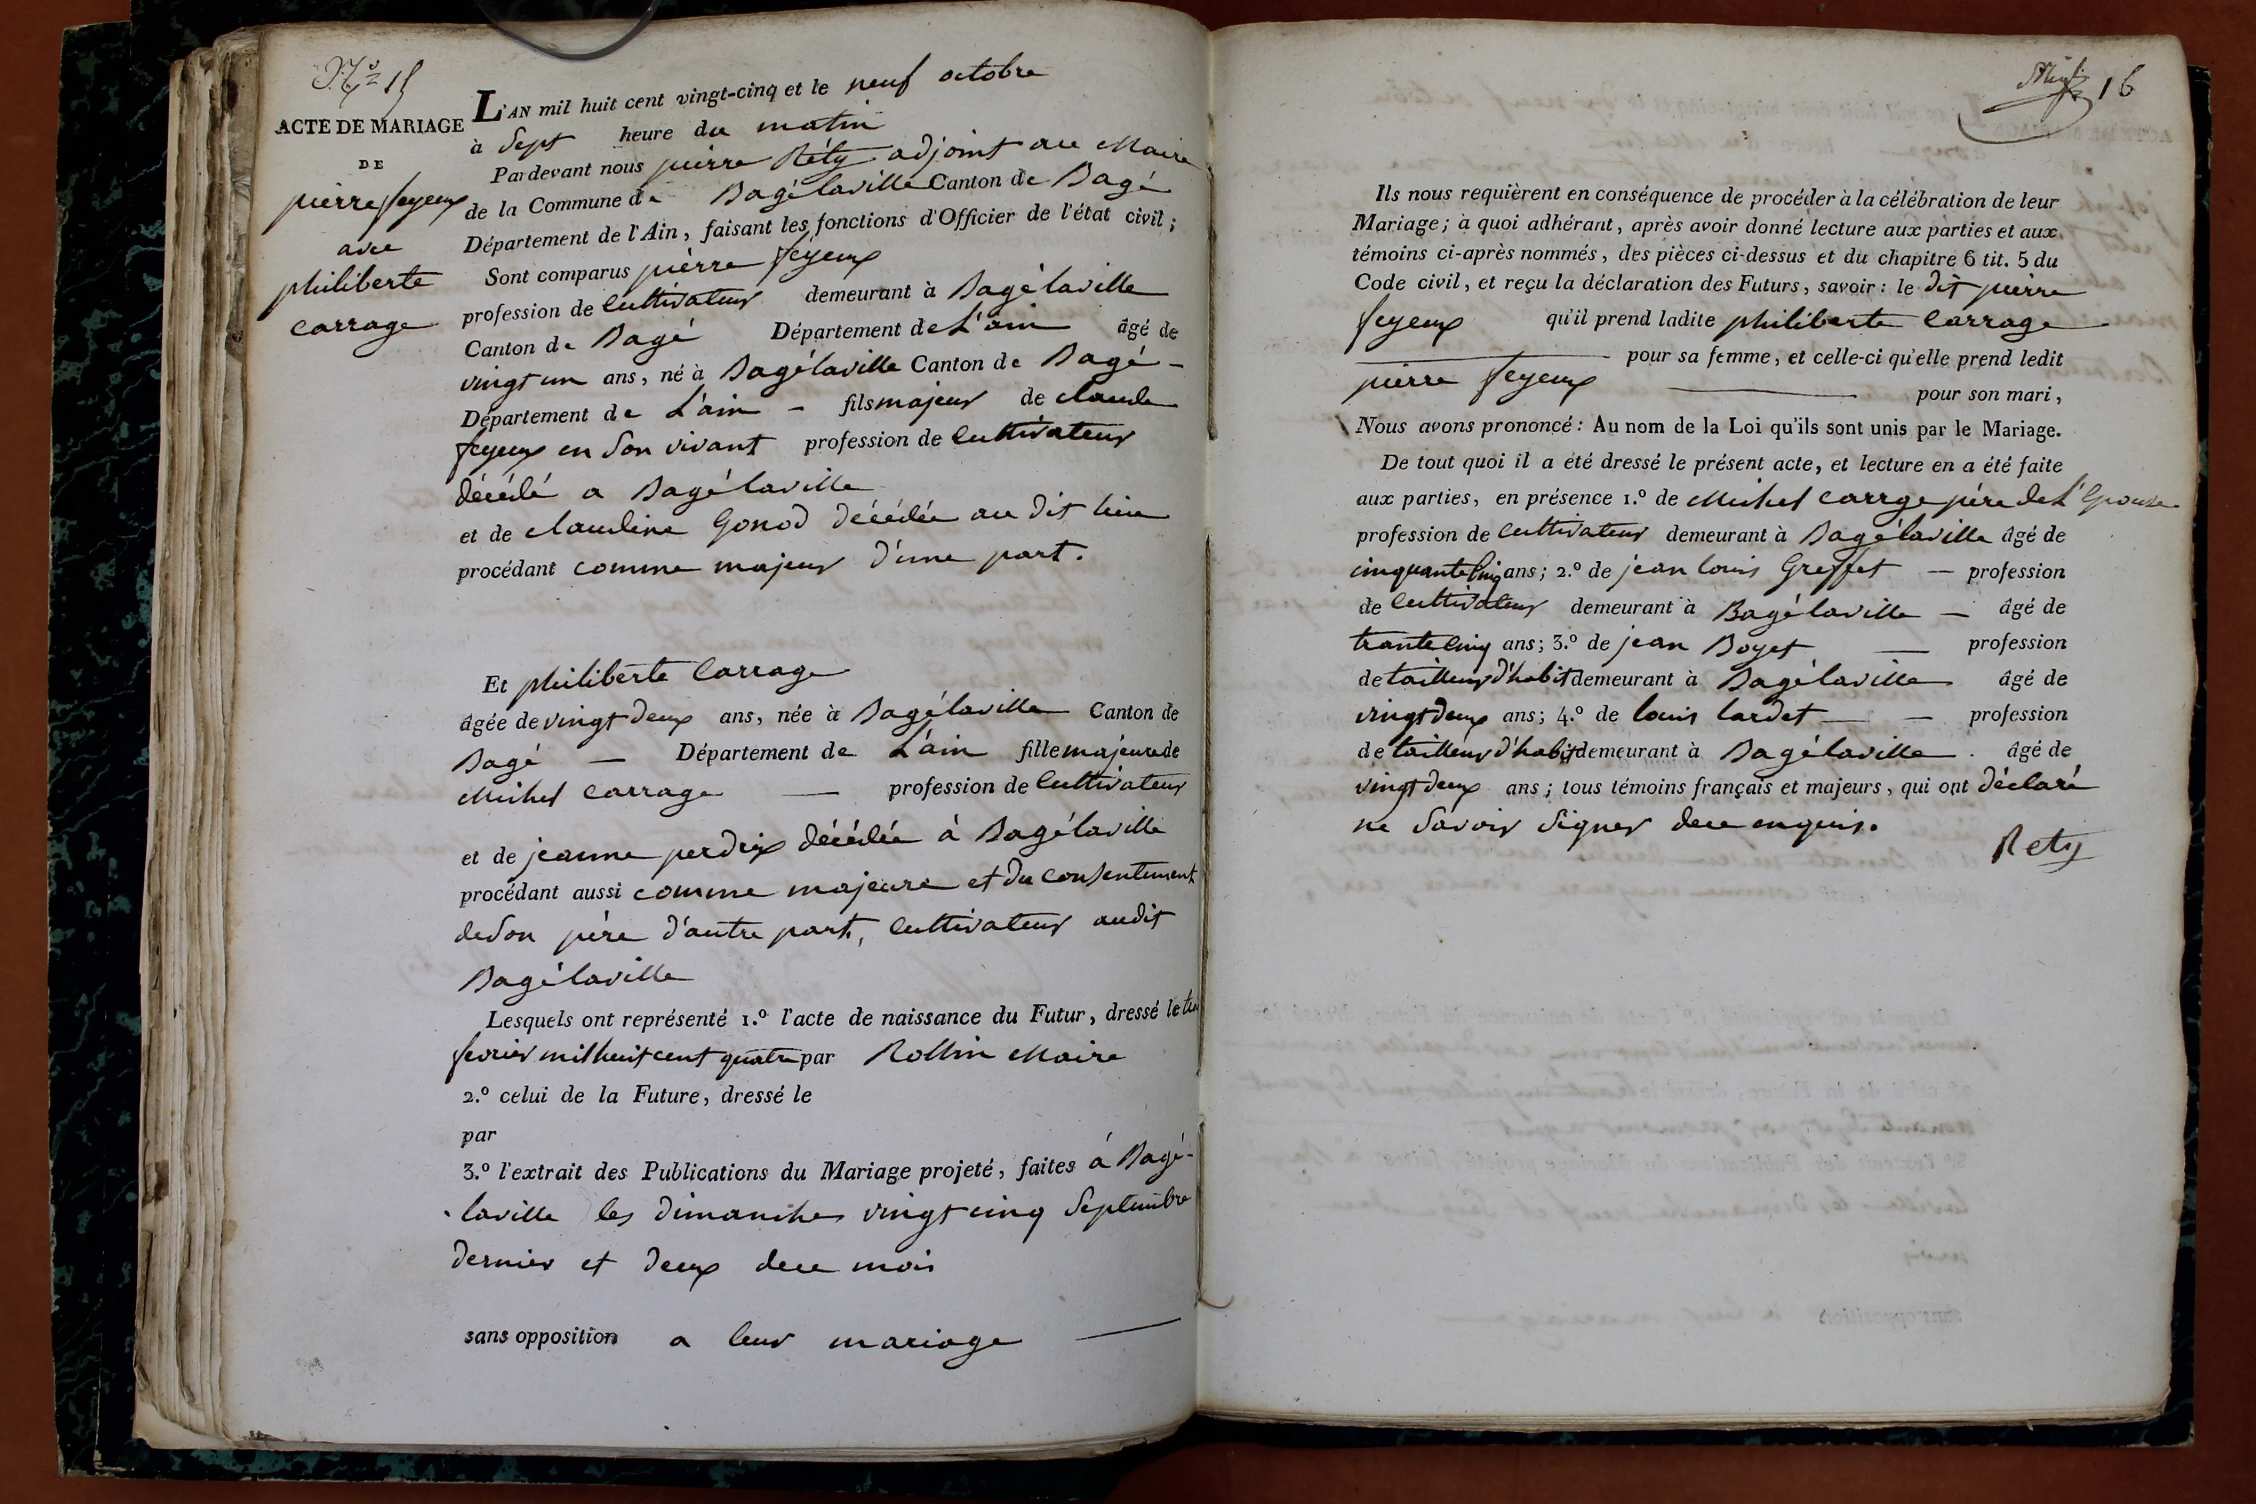 N.º 15
ACTE DE MARIAGE
DE
pierre feyeux
avec
philiberte
carrage
L'AN mil huit cent vingt-cinq et le neuf octobre
à Sept heure du matin
Pardevant nous pierre Réty adjoint au Maire
de la Commune de Bagélaville Canton de Bagé
Département de l'Ain, faisant les fonctions d'Officier de l'état civil;
Sont comparus pièrre feyeux
profession de Cultivateur demeurant à Bagélaville
Canton de Bagé Département de L'ain âgé de
vingt un ans, né à Bagélaville Canton de Bagé -
Département de L'ain - fils majeur de claude
feyeux en Son vivant profession de Cultivateur
décédé a Bagélaville
et de claudine Gonod décédée au dit lieu
procédant comme majeur d'une part.
Et philiberte Carrage
âgée de vingt deux ans, née à Bagélaville Canton de
Bagé — Département de L'ain fille majeure de
Michel Carrage — profession de Cultivateur
et de jeanne perdrix décédée à Bagélaville
procédant aussi comme majeure et du Consentement
de Son père d'autre part, Cultivateur audit
Bagélaville
Lesquels ont représenté 1.º l'acte de naissance du Futur, dressé le
fevrier mil huit cent quatre par Rollin Maire
2.º celui de la Future, dressé le
par
3.º l'extrait des Publications du Mariage projeté, faites á Bagé-
laville les dimanches vingt cinq Septembre
dernier et deux dece mois
sans opposition a leur mariage —
16
Ils nous requièrent en conséquence de procéder à la célébration de leur
Mariage; à quoi adhérant, après avoir donné lecture aux parties et aux
témoins ci-après nommés, des pièces ci-dessus et du chapitre 6 tit. 5 du
Code civil, et reçu la déclaration des Futurs, savoir: le dit pierre
feyeux qu'il prend ladite philiberte Carrage
— pour sa femme, et celle-ci qu'elle prend ledit
pierre feyeux — pour son mari,
Nous avons prononcé: Au nom de la Loi qu'ils sont unis par le Mariage.
De tout quoi il a été dressé le présent acte, et lecture en a été faite
aux parties, en présence 1.º de Michel carrge père de L'Epouse
profession de Cultivateur demeurant à Bagélaville âgé de
cinquante Cinq ans; 2.º de jean louis Greffet — profession
de Cultivateur demeurant à Bagélaville — âgé de
trante Cinq ans; 3.º de jean Boyet — profession
de tailleur d'habit demeurant à Bagélaville âgé de
vingt deux ans; 4.º de louis lardet — — profession
de tailleur d'habit demeurant à Bagélaville âgé de
vingt deux ans; tous témoins français et majeurs, qui ont déclaré
ne Savoir Signer dece enquis.
Rety